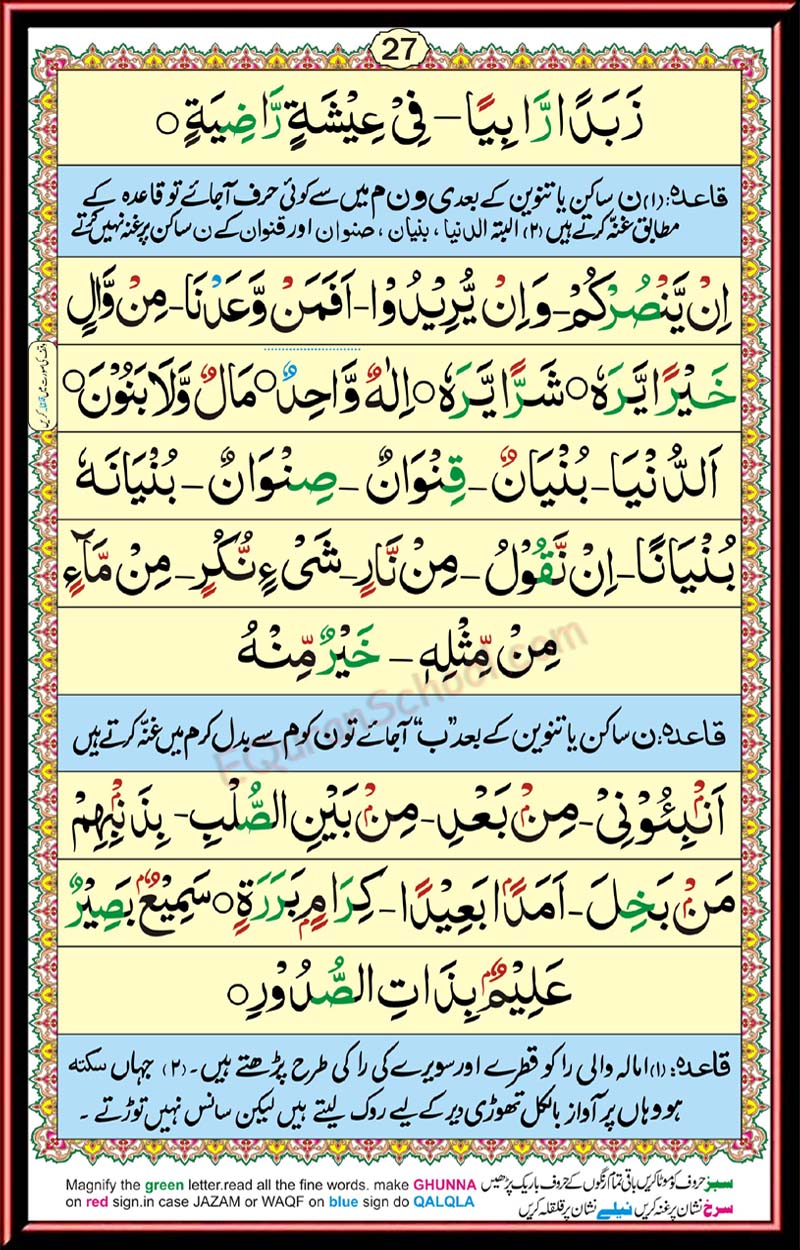 27
زَبَدًا رَّابِيًا - فِيْ عِيْشَةٍ رَّاضِيَةٍ ○
قاعدہ: (۱) ن ساکن یا تنوین کے بعد ی و ن م میں سے کوئی حرف آجائے تو قاعدہ کے
مطابق غنّہ کرتے ہیں (۲) البتہ الدنیا، بنیان، صنوان اور قنوان کے ن ساکن پر غنہ نہیں کرتے
اِنْ يَّنْصُرْكُمْ - وَاِنْ يُّرِيْدُوْا - اَفَمَنْ وَّعَدْنَا - مِنْ وَّالٍ
خَيْرًا يَّرَهٗ ○ شَرًّا يَّرَهٗ ○ اِلٰهٌ وَّاحِدٌ ○ مَالٌ وَّلَا بَنُوْنَ ○
اَلدُّنْيَا - بُنْيَانٌ - قِنْوَانٌ - صِنْوَانٌ - بُنْيَانَهٗ
بُنْيَانًا - اِنْ نَّقُوْلُ - مِنْ نَّارٍ - شَيْءٍ نُّكُرٍ - مِنْ مَّآءٍ
مِنْ مِّثْلِهٖ - خَيْرٌ مِّنْهُ
EQuranSchool.com
قاعدہ: ن ساکن یا تنوین کے بعد "ب" آجائے تو ن کو م سے بدل کر م میں غنّہ کرتے ہیں
اَنْۢبِئُوْنِيْ - مِنْۢ بَعْدِ - مِنْۢ بَيْنِ الصُّلْبِ - بِذَنْۢبِهِمْ
مَنْۢ بَخِلَ - اَمَدًۢا بَعِيْدًا - كِرَامٍۭ بَرَرَةٍ ○ سَمِيْعٌۢ بَصِيْرٌ
عَلِيْمٌۢ بِذَاتِ الصُّدُوْرِ ○
قاعدہ: (۱) امالہ والی را کو قطرے اور سویرے کی را کی طرح پڑھتے ہیں۔ (۲) جہاں سکتہ
ہو وہاں پر آواز بالکل تھوڑی دیر کے لیے روک لیتے ہیں لیکن سانس نہیں توڑتے۔
Magnify the green letter.read all the fine words. make GHUNNA
on red sign.in case JAZAM or WAQF on blue sign do QALQLA
سبز حروف کو موٹا کریں باقی تمام رنگوں کے حروف باریک پڑھیں
سرخ نشان پر غنہ کریں نیلے نشان پر قلقلہ کریں